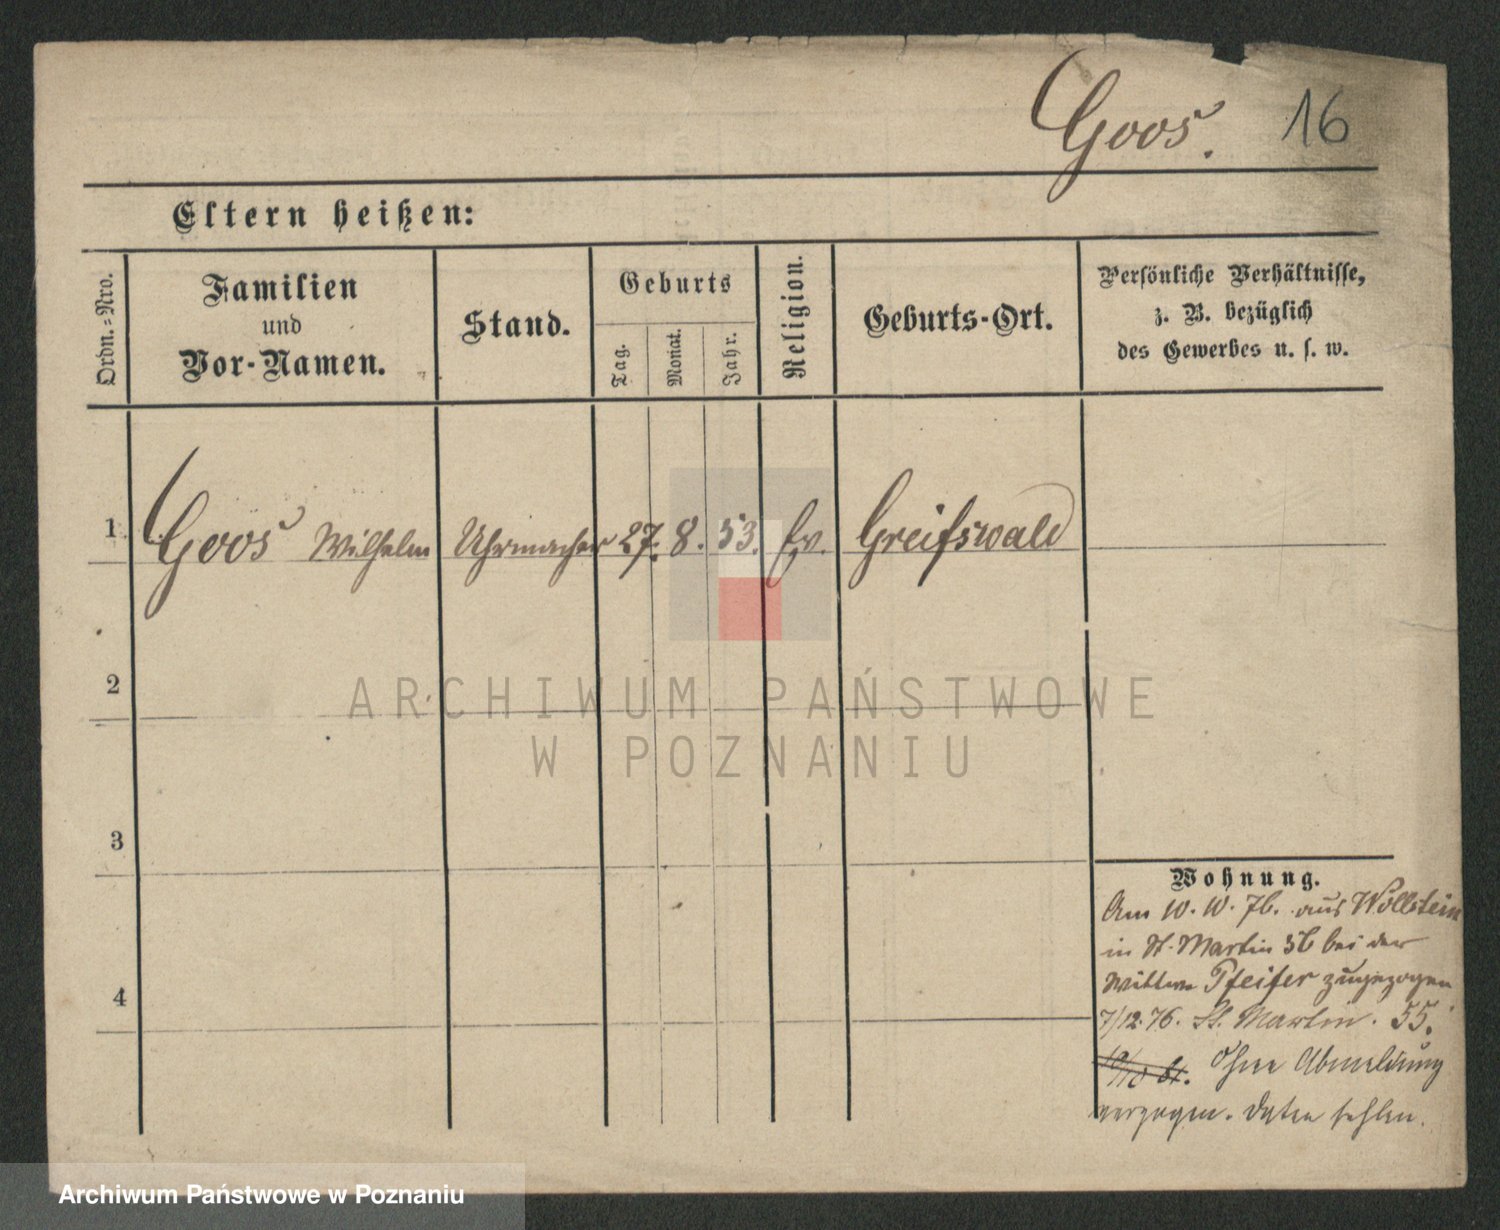 Goos. 16
Eltern heißen:
Ordn.=Nro.
Familien
und
Vor-Namen.
Stand.
Geburts
Tag.
Monat.
Jahr.
Religion.
Geburts-Ort.
Persönliche Verhältnisse,
z. B. bezüglich
des Gewerbes u. s. w.
1 Goos Wilhelm Uhrmacher 27. 8. 53. Ev. Greifswald
2
ARCHIWUM PAŃSTWOWE
W POZNANIU
3
4
Wohnung.
Am 10. 10. 76. aus Wollstein
in St. Martin 56 bei der
Wittwe Pfeifer zugezogen
7/12. 76. St. Martin. 55.
Ohne Abmeldung
verzogen. Daten fehlen.
Archiwum Państwowe w Poznaniu